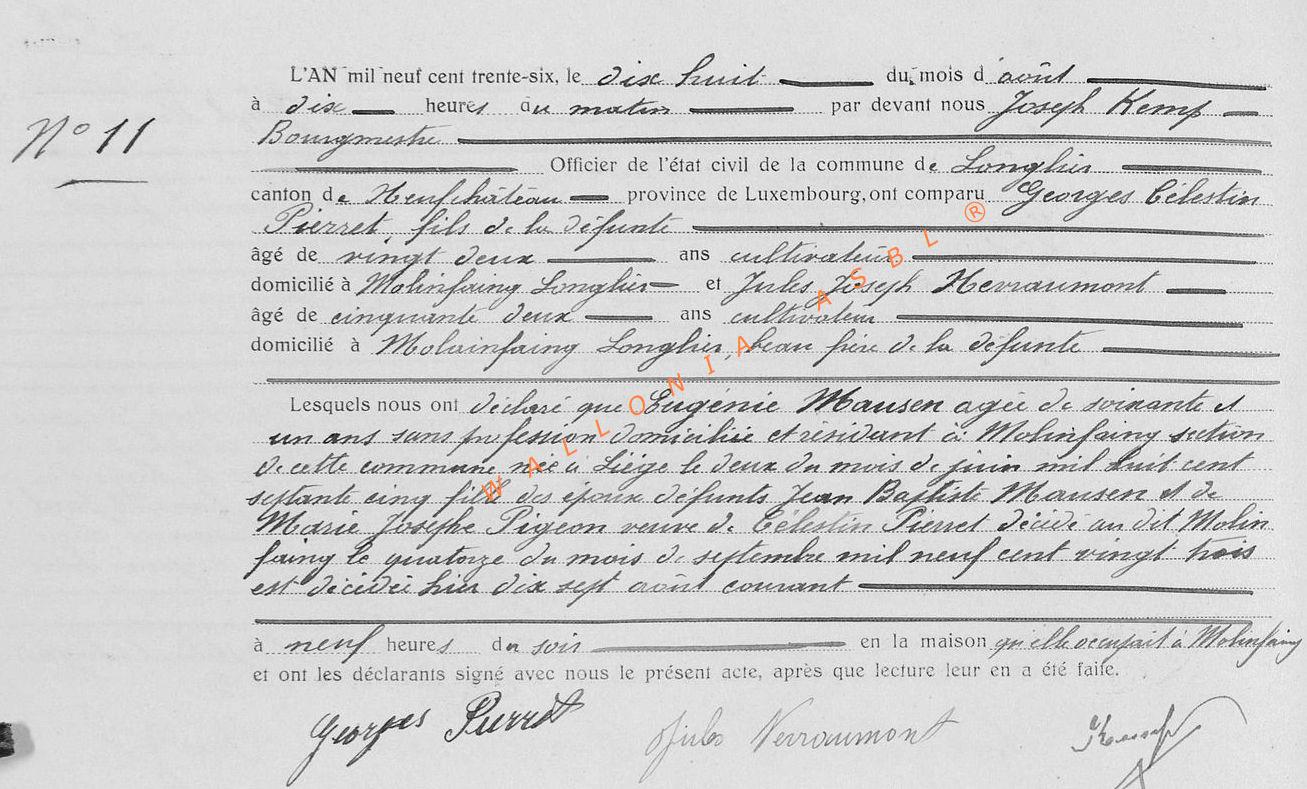 L'AN mil neuf cent trente-six, le dix huit du mois d'août
à dix heures du matin par devant nous Joseph Kemp
N° 11
Bourgmestre
Officier de l'état civil de la commune de Longlier
canton de Neufchâteau province de Luxembourg, ont comparu Georges Célestin
Pierret, fils de la défunte
âgé de vingt deux ans cultivateur
domicilié à Molinfaing Longlier et Jules Joseph Nerraumont
âgé de cinquante deux ans cultivateur
domicilié à Molainfaing Longlier, beau frère de la défunte
Lesquels nous ont déclaré que Eugénie Mausen agée de soixante et
un ans sans profession domiciliée et résidant à Molinfaing section
de cette commune née à Liége le deux du mois de juin mil huit cent
septante cinq fille des époux défunts Jean Baptiste Mausen et de
Marie Josephe Pigeon veuve de Célestin Pierret décédé au dit Molin
faing le quatorze du mois de septembre mil neuf cent vingt trois
est décédée hier dix sept août courant
à neuf heures du soir en la maison qu'elle occupait à Molinfaing
et ont les déclarants signé avec nous le présent acte, après que lecture leur en a été faite.
Georges Pierret Jules Nerraumont JKemp
WALLONIA ASBL ®